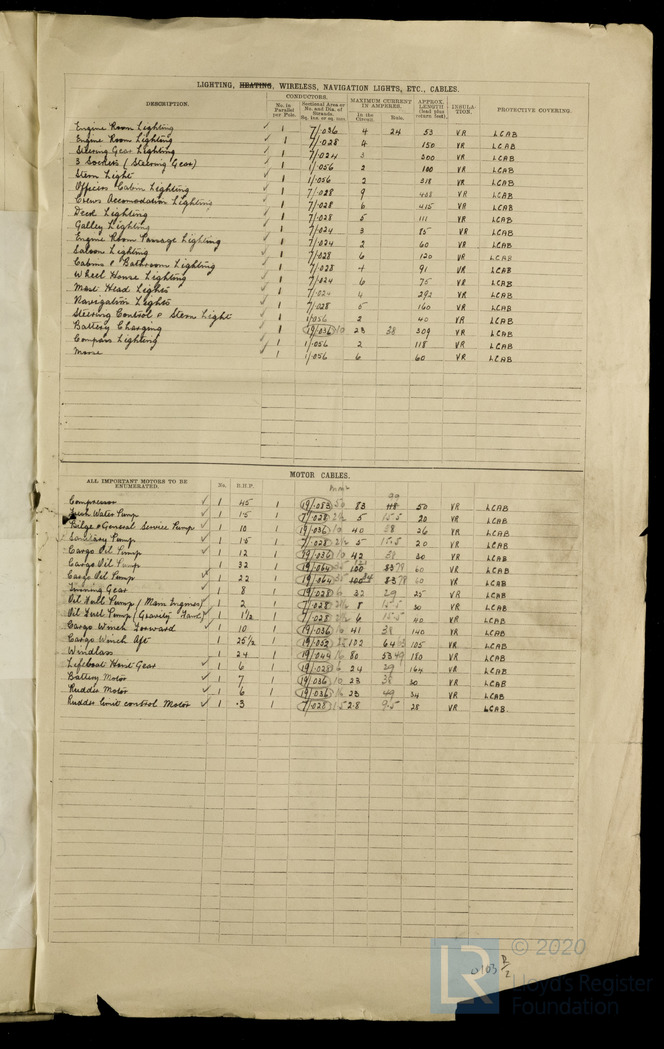 LIGHTING, HEATING, WIRELESS, NAVIGATION LIGHTS, ETC., CABLES.
DESCRIPTION. CONDUCTORS. No. in Parallel per Pole. Sectional Area or No. and Dia. of Strands. Sq. ins. or sq. mm. MAXIMUM CURRENT IN AMPERES. In the Circuit. Rule. APPROX. LENGTH (lead plus return feet). INSULATION. PROTECTIVE COVERING.
Engine Room Lighting ✓ 1 7/.036 4 24 53 VR LCAB
Engine Room Lighting ✓ 1 7/.028 4 150 VR LCAB
Steering Gear Lighting ✓ 1 7/.024 3 300 VR LCAB
3 Sockets (Steering Gear) ✓ 1 1/.056 2 100 VR LCAB
Stern Light ✓ 1 1/.056 2 318 VR LCAB
Officers Cabin Lighting ✓ 1 7/.028 9 408 VR LCAB
Crews Accomodation Lighting ✓ 1 7/.028 6 415 VR LCAB
Deck Lighting ✓ 1 7/.028 5 111 VR LCAB
Galley Lighting ✓ 1 7/.024 3 85 VR LCAB
Engine Room Passage Lighting ✓ 1 7/.024 2 60 VR LCAB
Saloon Lighting ✓ 1 7/.028 6 120 VR LCAB
Cabins & Bathroom Lighting ✓ 1 7/.028 4 91 VR LCAB
Wheel House Lighting ✓ 1 7/.024 6 75 VR LCAB
Mast Head Lights ✓ 1 7/.024 4 292 VR LCAB
Navigation Lights ✓ 1 7/.028 5 160 VR LCAB
Steering Control & Stern Light ✓ 1 1/.056 2 40 VR LCAB
Battery Charging ✓ 1 19/.036 10 23 38 309 VR LCAB
Compass Lighting ✓ 1 1/.056 2 118 VR LCAB
Morse ✓ 1 1/.056 6 60 VR LCAB
MOTOR CABLES.
ALL IMPORTANT MOTORS TO BE ENUMERATED. No. B.H.P.
Compressor ✓ 1 45 1 19/.083 50 83 99 118 50 VR LCAB
Fresh Water Pump ✓ 1 1.5 1 7/.028 2½ 5 15.5 20 VR LCAB
Bilge & General Service Pump ✓ 1 10 1 19/.036 10 40 38 26 VR LCAB
Sanitary Pump ✓ 1 1.5 1 7/.028 2½ 5 15.5 20 VR LCAB
Cargo Oil Pump ✓ 1 12 1 19/.036 10 42 38 30 VR LCAB
Cargo Oil Pump ✓ 1 32 1 19/.064 35 100 83 79 60 VR LCAB
Cargo Oil Pump 1 22 1 19/.064 35 100 84 83 79 60 VR LCAB
Turning Gear ✓ 1 8 1 19/.028 6 32 29 25 VR LCAB
Oil Fuel Pump (Main Engines) ✓ 1 2 1 7/.028 2½ 8 15.5 30 VR LCAB
Oil Fuel Pump (Gravity Tank) ✓ 1 1½ 1 7/.028 2½ 6 15.5 40 VR LCAB
Cargo Winch Forward ✓ 1 10 1 19/.036 10 41 38 140 VR LCAB
Cargo Winch Aft 1 25½ 1 19/.052 25 102 64 63 105 VR LCAB
Windlass ✓ 1 24 1 19/.044 16 80 53 49 180 VR LCAB
Lifeboat Hoist Gear ✓ 1 6 1 19/.028 6 24 29 164 VR LCAB
Battery Motor ✓ 1 7 1 19/.036 10 23 38 30 VR LCAB
Rudder Motor ✓ 1 6 1 19/.036 16 23 49 34 VR LCAB
Rudder limit control Motor ✓ 1 .3 1 7/.028 1.5 2.8 9.5 28 VR LCAB.
0103 R/2
© 2020
LR
Lloyd's Register
Foundation